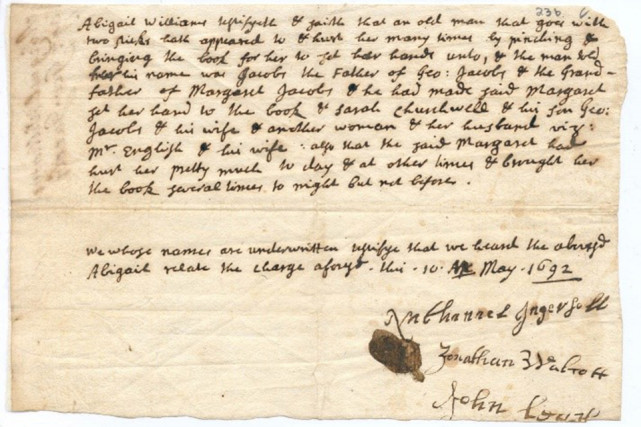 236
Abigail Williams testifyeth & saith that an old man that goes with
two sticks hath appeared to & hurt her many times by pinching &
bringing the book for her to set her hand unto, & the man told
her his name was Jacobs the Father of Geo: Jacobs & the Grand-
father of Margaret Jacobs & he had made said Margaret
set her hand to the book & Sarah Churchwell & his son Geo:
Jacobs & his wife & another woman & her husband viz:
Mr. English & his wife: also that the said Margaret had
hurt her pretty much to day & at other times & brought her
the book several times to night but not before.
we whose names are underwritten testifye that we heard the abovesd
Abigail relate the charge aforesd. this 10 May. 1692
Nathaniel Ingersoll
Jonathan Walcott
John